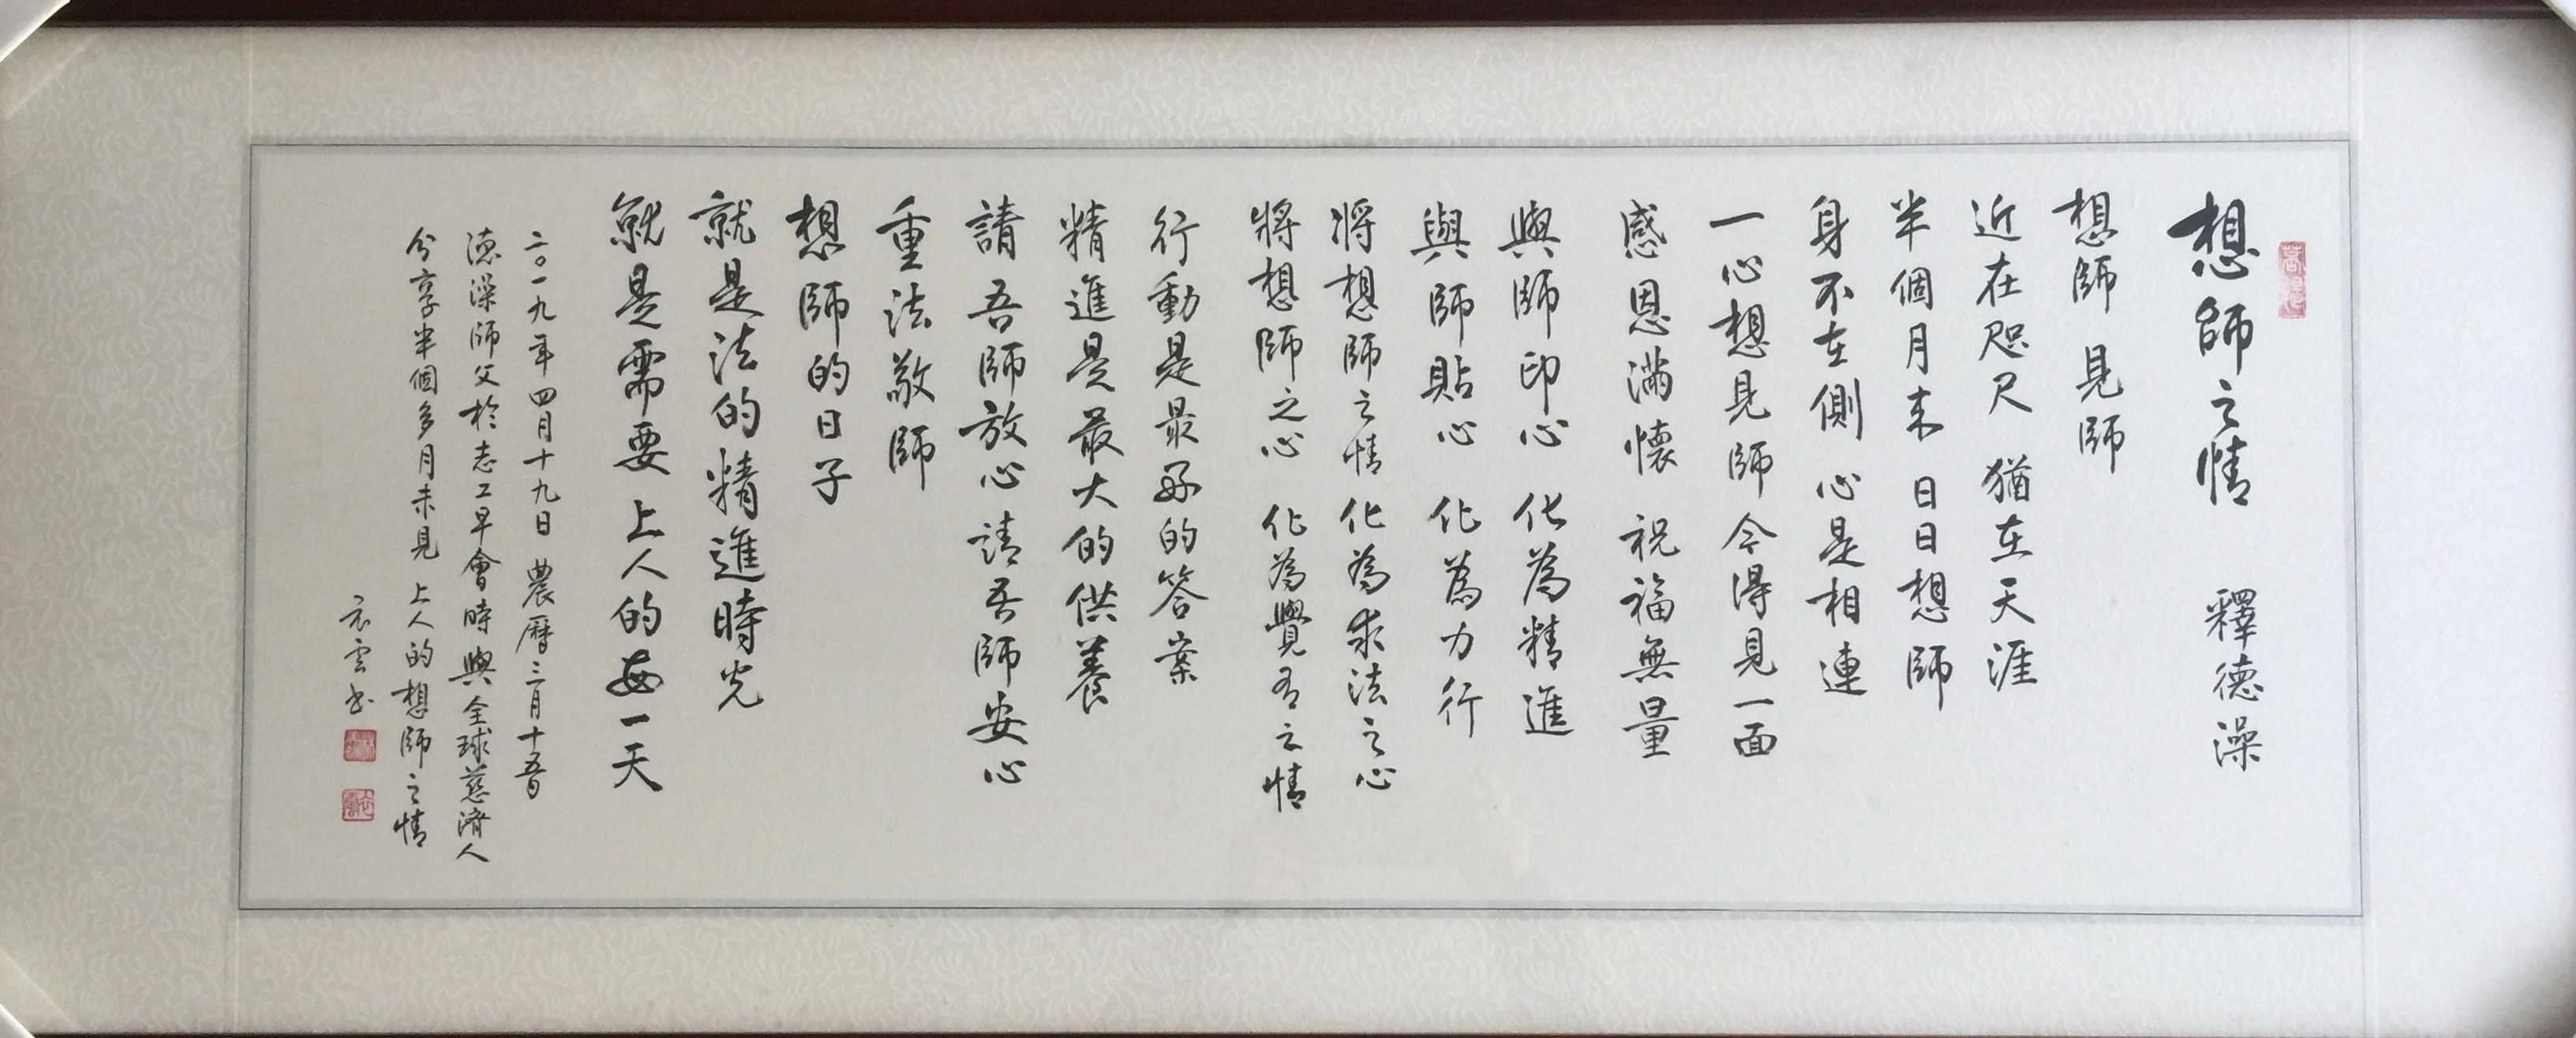 想師之情 釋德澡
想師 見師
近在咫尺 猶在天涯
半個月來 日日想師
身不在側 心是相連
一心想見師 今得見一面
感恩滿懷 祝福無量
與師印心 化為精進
與師貼心 化為力行
將想師之情 化為求法之心
將想師之心 化為覺有之情
行動是最好的答案
精進是最大的供養
請吾師放心 請吾師安心
重法敬師
想師的日子
就是法的精進時光
就是需要 上人的每一天
二〇一九年四月十九日 農曆三月十五日
德澡師父於志工早會時與全球慈濟人
分享半個多月未見 上人的想師之情
衣雲書